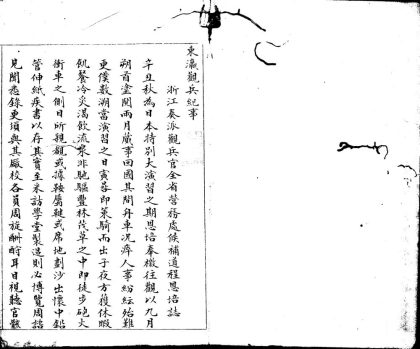 東瀛觀兵紀事
浙江奏派觀兵官全省營務處候補道程恩培誌
辛丑秋為日本特別大演習之期恩培奉檄往觀以九月
朔首塗閱兩月蕆事回國其間舟車況瘁人事紛紜殆難
更僕數溯當演習之日寅莓即策騎而出子夜方獲休暇
飢餐冷炙渴飲流潦非馳驅豐林茂草之中即徒步砲火
衝車之側日所親觀或據鞍屬鞬或席地劃沙出懷中鉛
管伸紙疾書以存其實至米詰學堂製造則必博覽周諮
見聞悉錄更須與其廠校各員周旋酬酢耳目視聽官骸